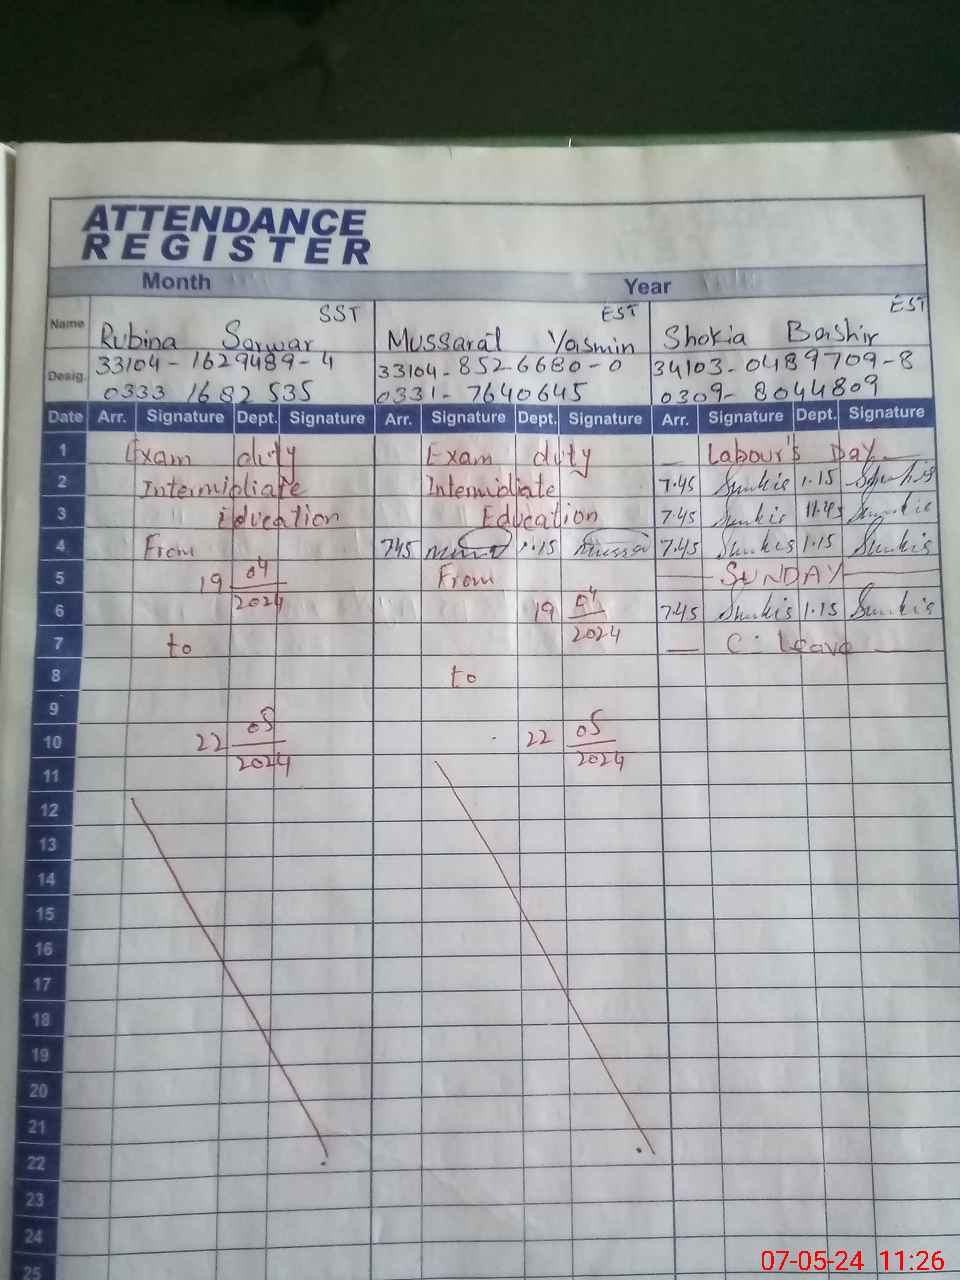 ATTENDANCE
REGISTER
Month Year
Name SST EST EST
Rubina Sarwar Mussarat Yasmin Shokia Bashir
Desig. 33104-1629489-4 33104-8526680-0 34103-0489709-8
0333 1682535 0331-7640645 0309-8044809
Date Arr. Signature Dept. Signature Arr. Signature Dept. Signature Arr. Signature Dept. Signature
1 Exam duty Exam duty Labour's Day
2 Intermidiate Intermidiate 7.45 1.15
3 Education Education 7.45 11.45
4 From 745 1.15 7.45 1.15
5 19 04/2024 From SUNDAY
6 19 04/2024 7.45 1.15
7 to C. Leave
8 to
9
10 22 05/2024 22 05/2024
11
12
13
14
15
16
17
18
19
20
21
22
23
24
25
07-05-24 11:26